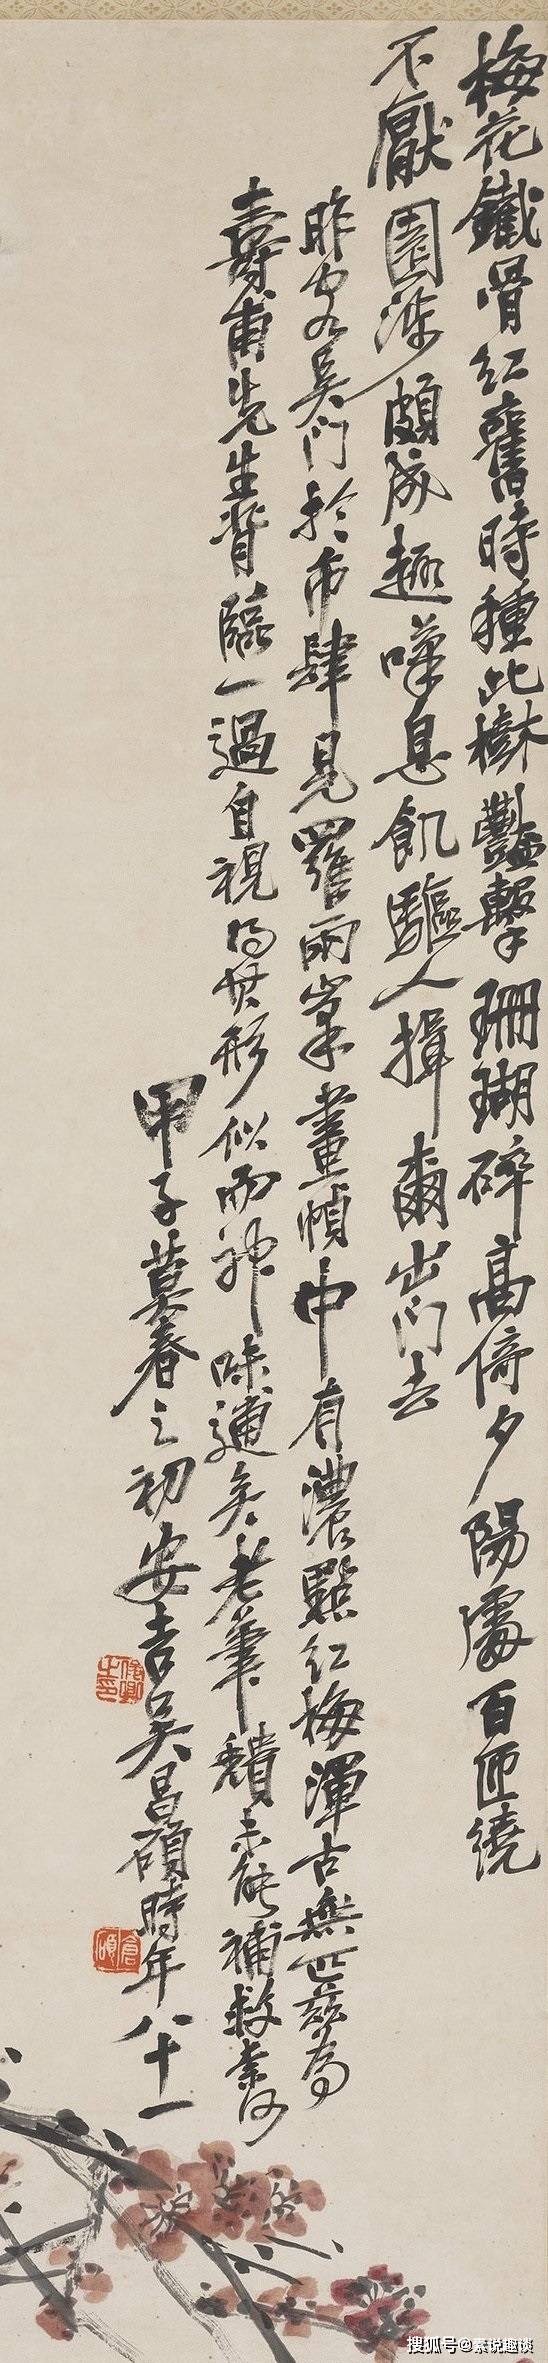 梅花鐵骨紅舊時種此樹豔擊珊瑚碎高倚夕陽處百匝繞
不厭園涉頗成趣嘆息飢驅人揖爾出門去
昨客吳門於市肆見羅兩峯畫幀中有濃點紅梅渾古無匹茲為
壽甫先生背臨一過自視得其形似而神味逋矣老筆穨未能補救奈何
甲子莫春之初安吉吳昌碩時年八十一
倉碩
搜狐号@素说趣谈